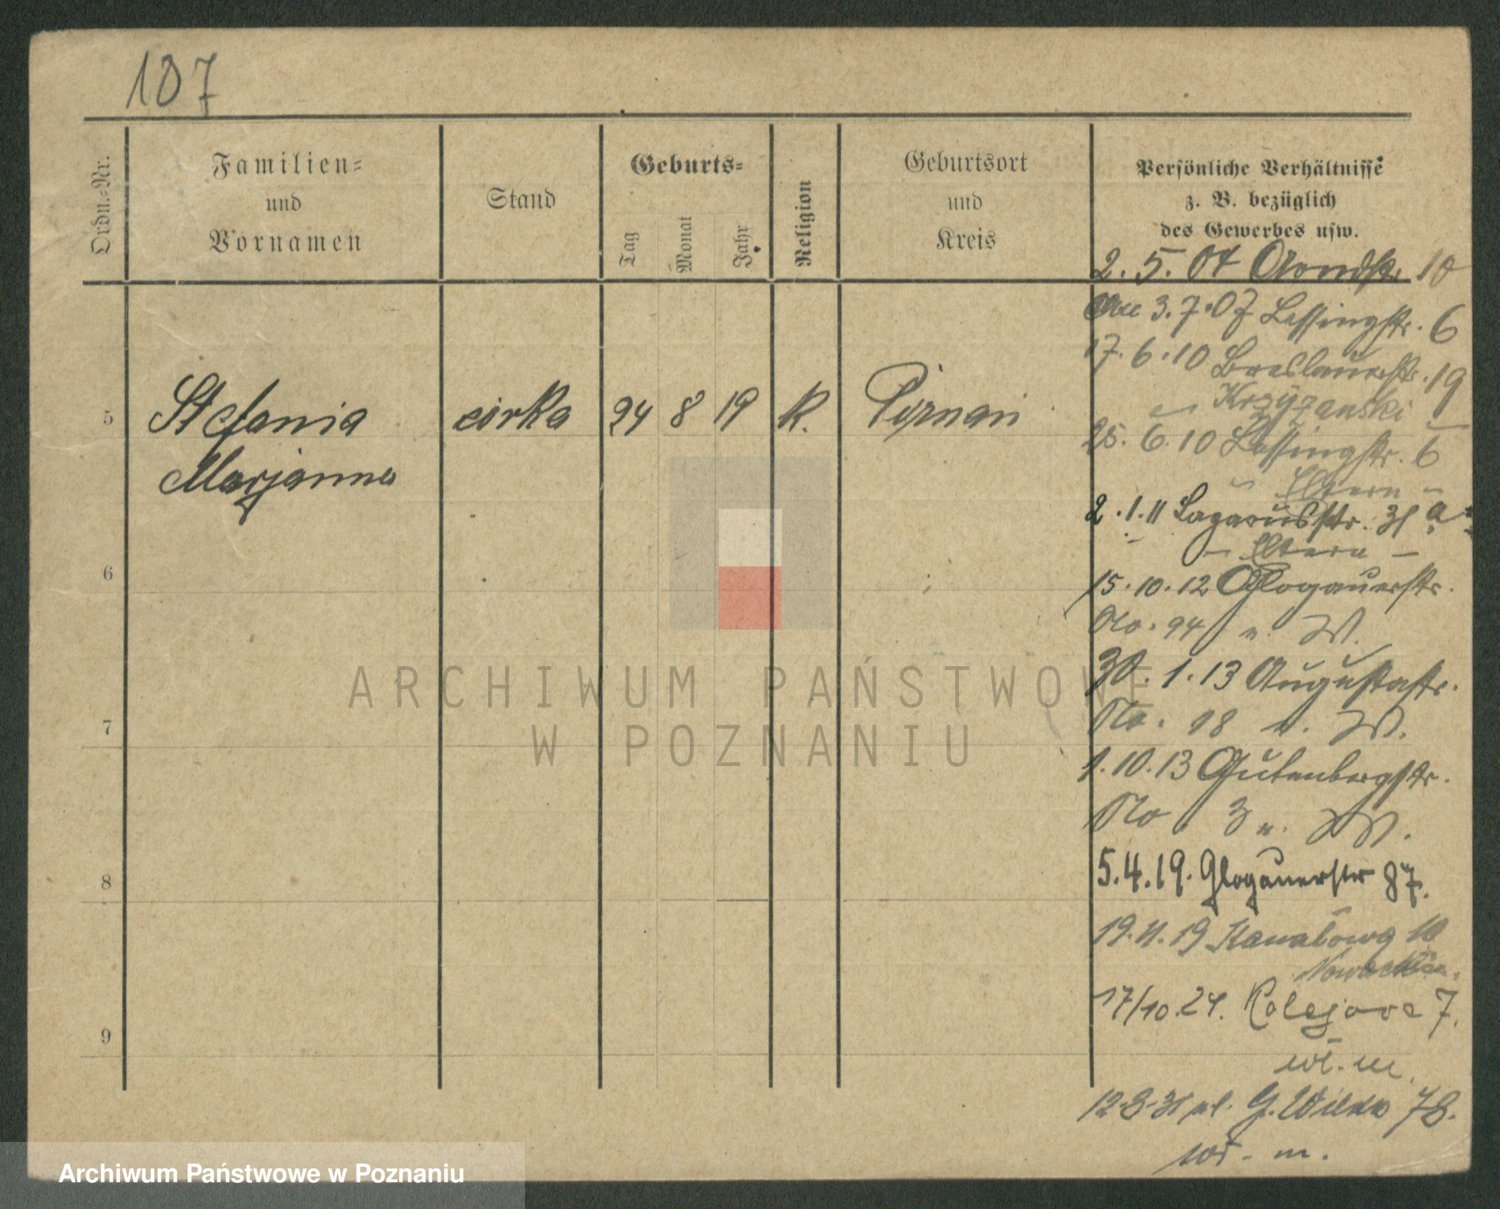 187
Ordn.-Nr.
Familien-
und
Vornamen
Stand
Geburts-
Tag
Monat
Jahr
Religion
Geburtsort
und
Kreis
Persönliche Verhältnisse
z. B. bezüglich
des Gewerbes usw.
2. 5. 07 10
3. 7. 07 Lessingstr. 6
17. 6. 10 Breslauerstr. 19
Krzyżanski
25. 6. 10 Lessingstr. 6
- Eltern -
2. 1. 11 Lazarusstr. 31 a
- Eltern -
15. 10. 12 Glogauerstr.
No. 94 n. W.
30. 1. 13 Augustastr.
No. 18 n. W.
1. 10. 13 Gutenbergstr.
No. 3 n. W.
5. 4. 19. Glogauerstr 87.
19. 11. 19 Kanałowa 10
17/10. 24. Kolejowa 7.
wł. m.
12-8-31 G. Wilda 78.
wł. m.
5
Stefania córka 24 8 19 K. Poznań
Marjanna
6
7
8
9
ARCHIWUM PAŃSTWOWE
W POZNANIU
Archiwum Państwowe w Poznaniu